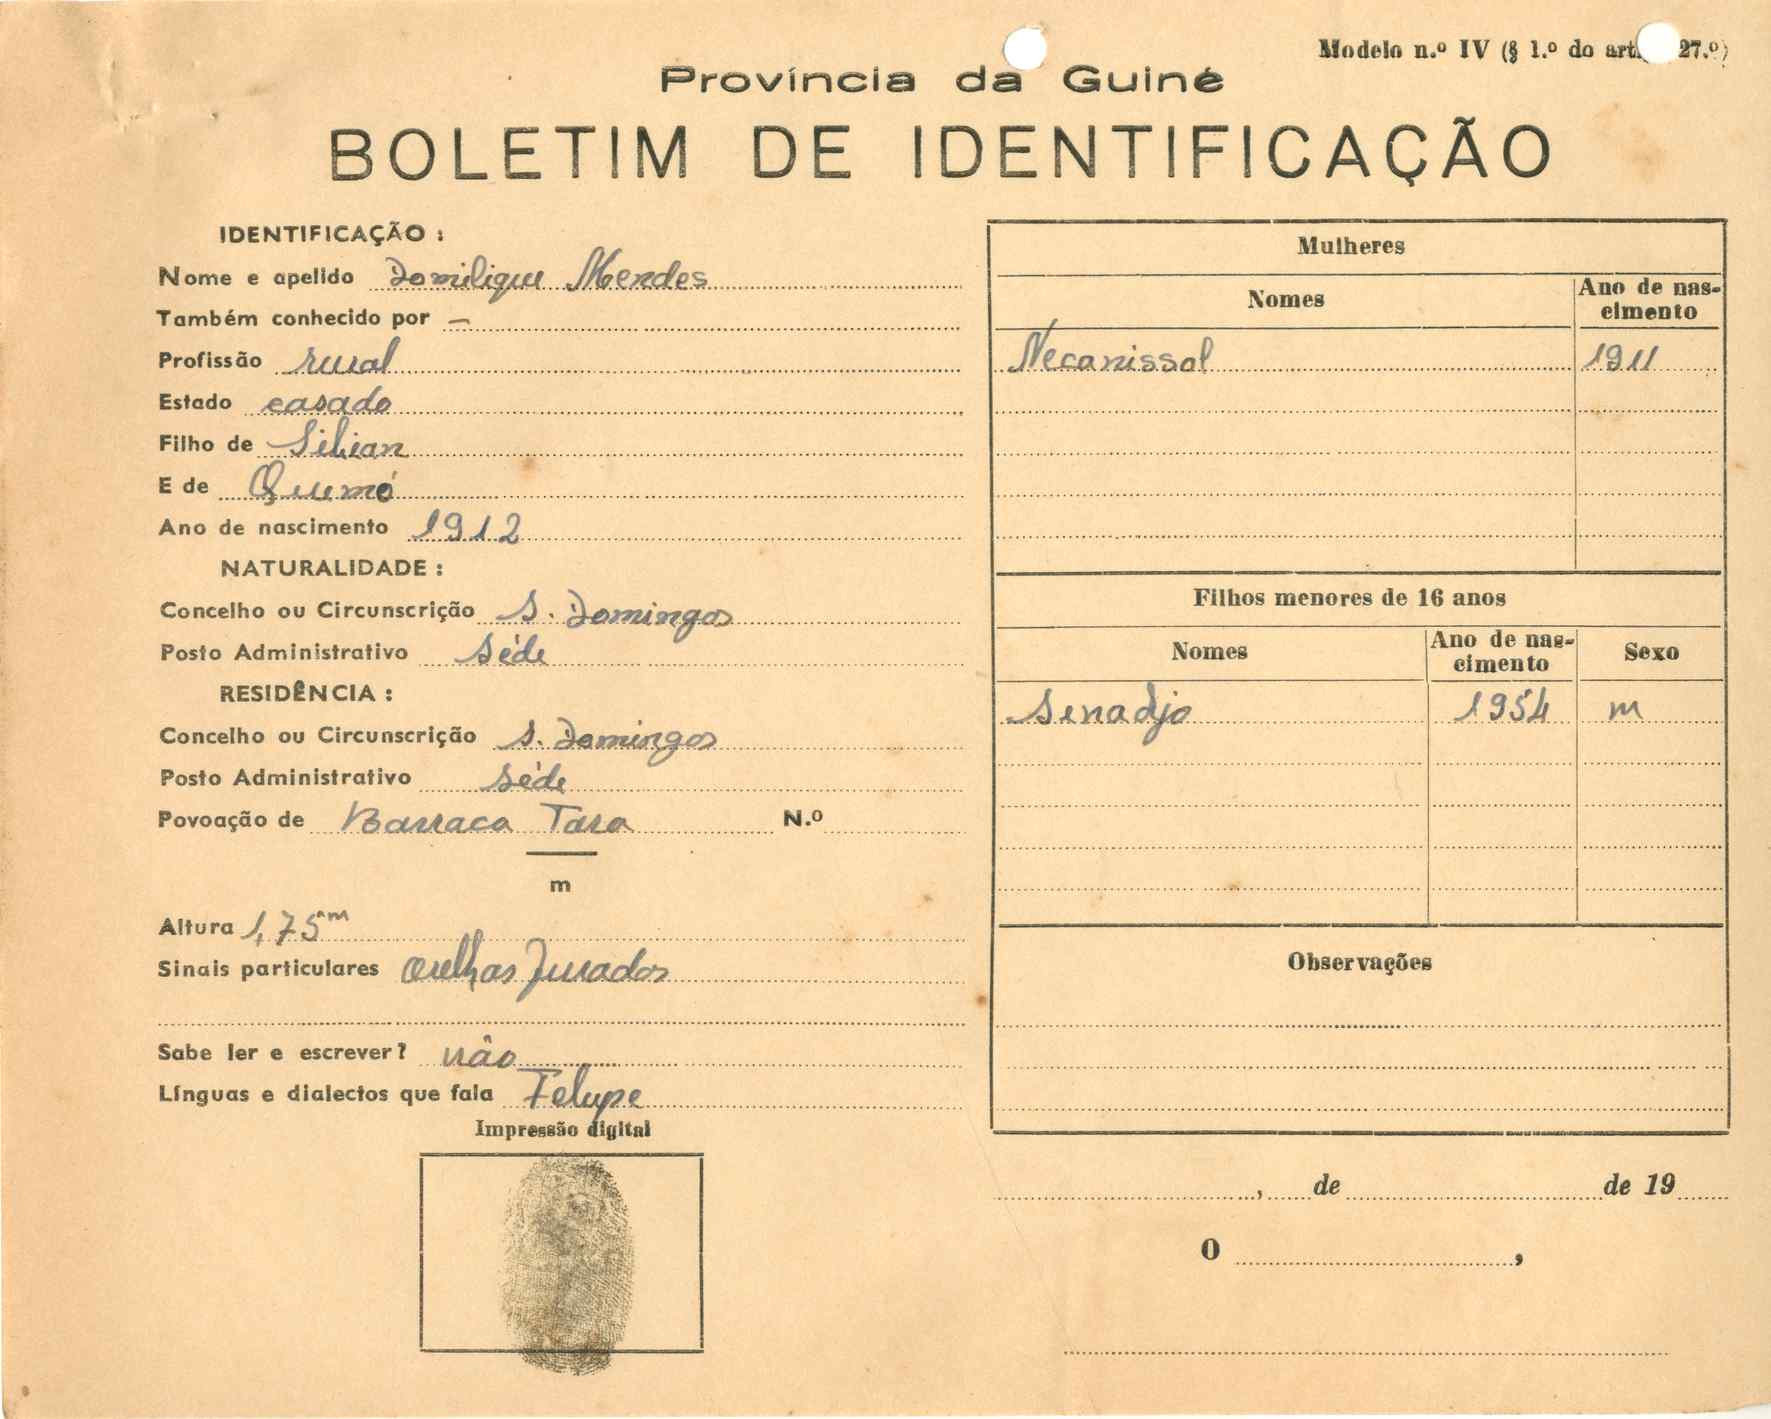 Modelo n.º IV (§ 1.º do art. 27.º)
Província da Guiné
BOLETIM DE IDENTIFICAÇÃO
IDENTIFICAÇÃO :
Nome e apelido Domilique Mendes
Também conhecido por —
Profissão rural
Estado casado
Filho de Silian
E de Quemó
Ano de nascimento 1912
NATURALIDADE :
Concelho ou Circunscrição S. Domingos
Posto Administrativo Séde
RESIDÊNCIA :
Concelho ou Circunscrição S. Domingos
Posto Administrativo Séde
Povoação de Barraca Tara N.º
m
Altura 1,75m
Sinais particulares orelhas furados
Sabe ler e escrever? não
Línguas e dialectos que fala Felupe
Impressão digital
Mulheres
Nomes Ano de nas-
cimento
Necanissol 1911
Filhos menores de 16 anos
Nomes Ano de nas-
cimento Sexo
Senadjo 1954 m
Observações
, de de 19
O ,